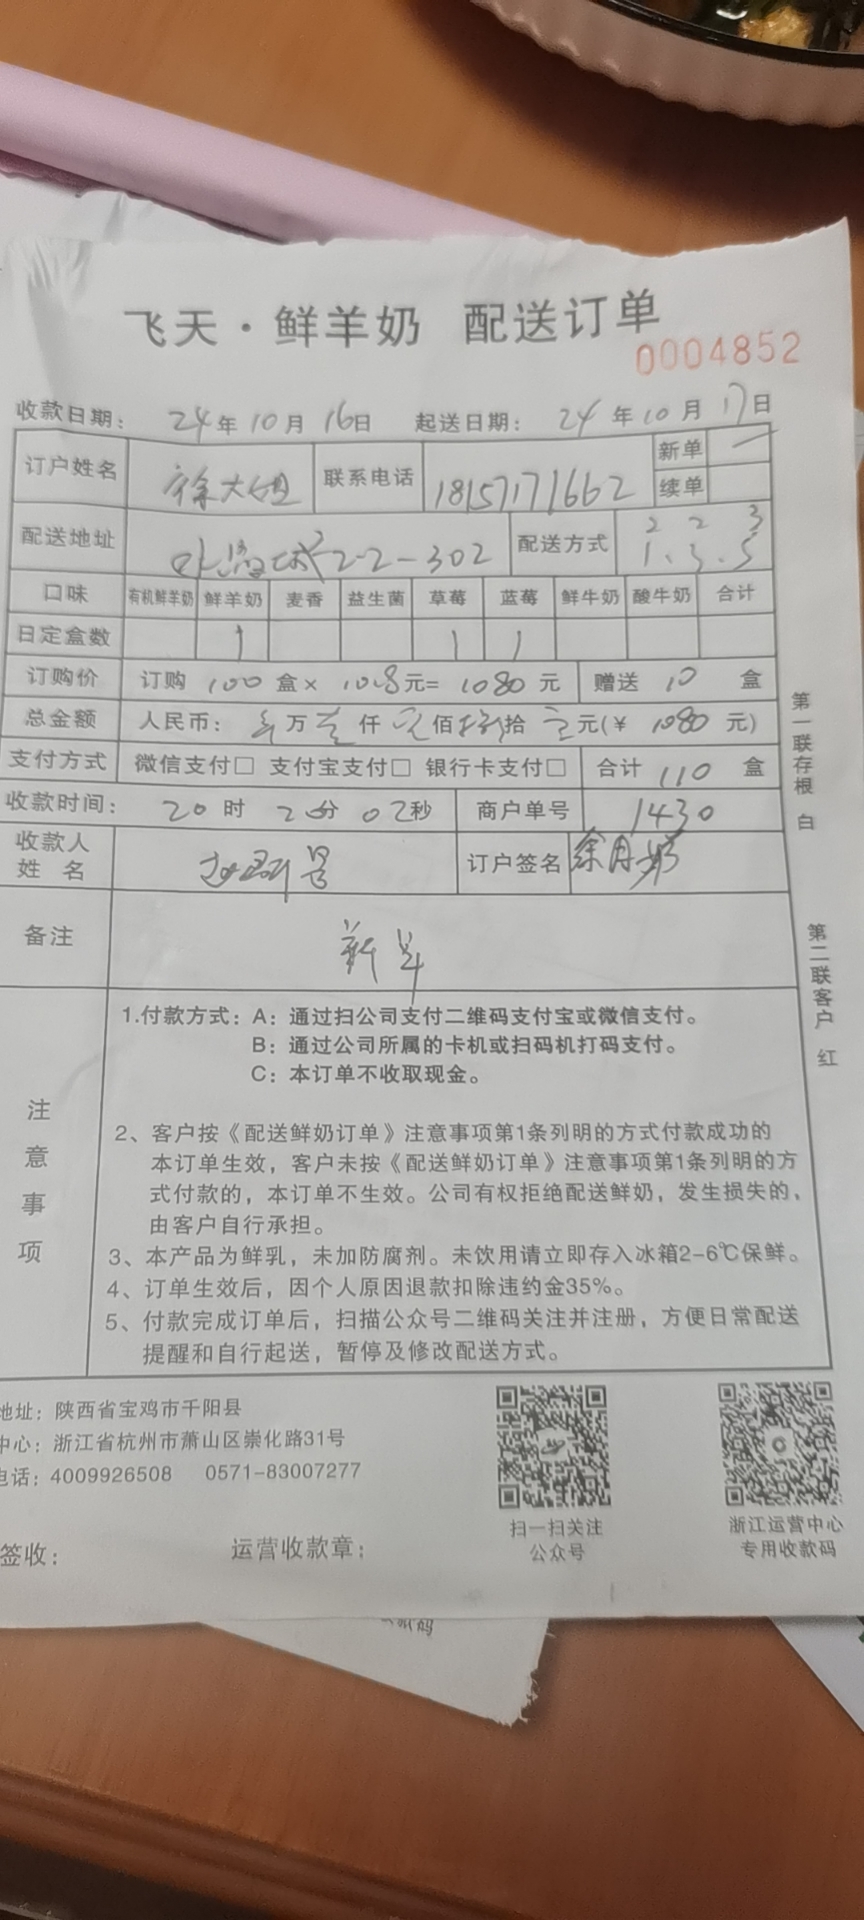 飞天·鲜羊奶 配送订单
0004852
收款日期: 24年10月16日 起送日期: 24年10月17日
订户姓名 徐大姐 联系电话 18157171662 新单
续单
配送地址 2-2-302 配送方式 1.3.5
2 2 3
口味 有机鲜羊奶 鲜羊奶 麦香 益生菌 草莓 蓝莓 鲜牛奶 酸牛奶 合计
日定盒数 1 1 1
订购价 订购 100 盒× 10.8元= 1080 元 赠送 10 盒
总金额 人民币: 万 仟 佰 拾 元(¥ 1080 元)
支付方式 微信支付□ 支付宝支付□ 银行卡支付□ 合计 110 盒
收款时间: 20时 2分 02秒 商户单号 1430
收款人
姓 名
订户签名
备注 新单
注意事项
1.付款方式: A: 通过扫公司支付二维码支付宝或微信支付。
B: 通过公司所属的卡机或扫码机打码支付。
C: 本订单不收取现金。
2、客户按《配送鲜奶订单》注意事项第1条列明的方式付款成功的
本订单生效，客户未按《配送鲜奶订单》注意事项第1条列明的方
式付款的，本订单不生效。公司有权拒绝配送鲜奶，发生损失的，
由客户自行承担。
3、本产品为鲜乳，未加防腐剂。未饮用请立即存入冰箱2-6℃保鲜。
4、订单生效后，因个人原因退款扣除违约金35%。
5、付款完成订单后，扫描公众号二维码关注并注册，方便日常配送
提醒和自行起送，暂停及修改配送方式。
第一联存根 白
第二联客户 红
地址: 陕西省宝鸡市千阳县
中心: 浙江省杭州市萧山区崇化路31号
电话: 4009926508 0571-83007277
扫一扫关注
公众号
浙江运营中心
专用收款码
签收: 运营收款章: